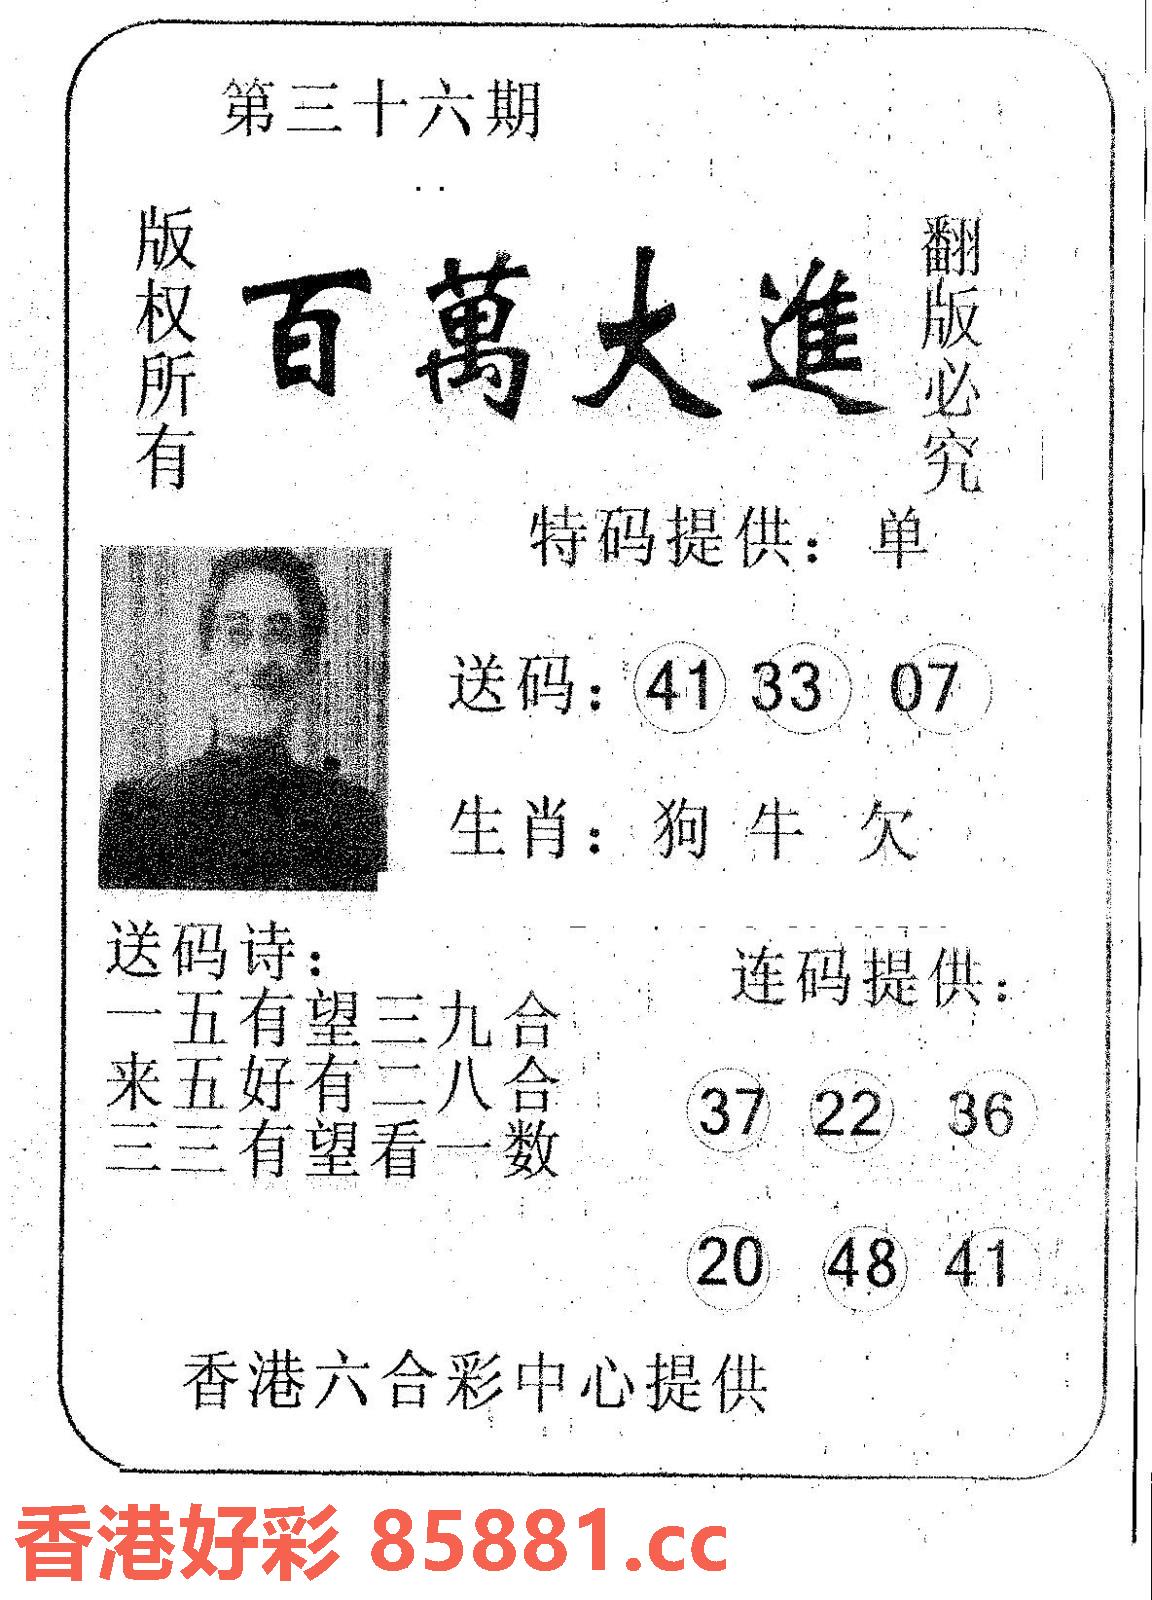 第三十六期
版权所有
百萬大進
翻版必究
特码提供：单
送码：41 33 07
生肖：狗 牛 欠
送码诗：
一五有望三九合
来五好有二八合
三三有望看一数
连码提供：
37 22 36
20 48 41
香港六合彩中心提供
香港好彩 85881.cc